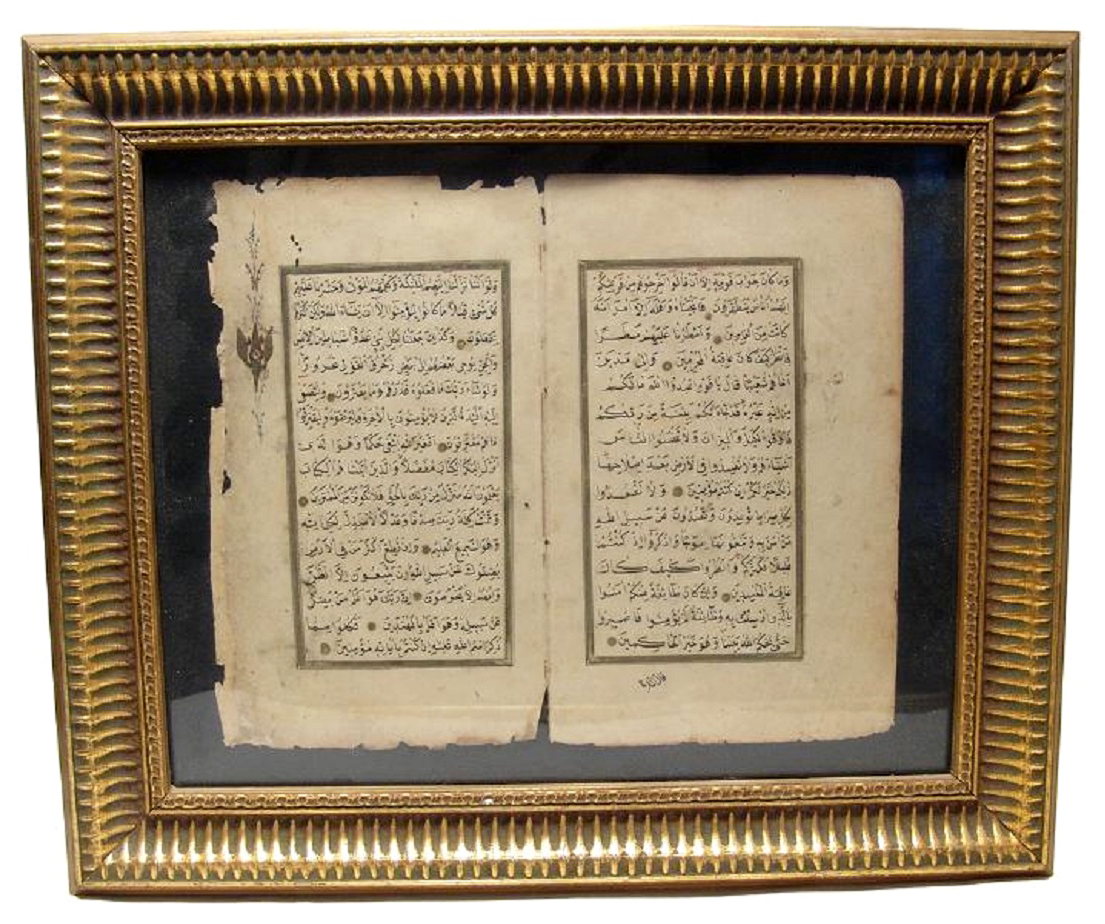 وما كان جواب قومه الا ان قالوا اخرجوهم من قريتكم
انهم اناس يتطهرون فانجيناه واهله الا امراته
كانت من الغابرين وامطرنا عليهم مطرا
فانظر كيف كان عاقبة المجرمين والى مدين
اخاهم شعيبا قال يا قوم اعبدوا الله مالكم
من اله غيره قد جاءتكم بينة من ربكم
فاوفوا الكيل والميزان ولا تبخسوا الناس
اشياءهم ولا تفسدوا في الارض بعد اصلاحها
ذلكم خير لكم ان كنتم مؤمنين ولا تقعدوا
بكل صراط توعدون وتصدون عن سبيل الله
من امن به وتبغونها عوجا واذكروا اذ كنتم
قليلا فكثركم وانظروا كيف كان
عاقبة المفسدين وان كان طائفة منكم امنوا
بالذي ارسلت به وطائفة لم يؤمنوا فاصبروا
حتى يحكم الله بيننا وهو خير الحاكمين
ولو اننا نزلنا اليهم الملئكة وكلمهم الموتى وحشرنا عليهم
كل شيء قبلا ما كانوا ليؤمنوا الا ان يشاء الله ولكن اكثرهم
يجهلون وكذلك جعلنا لكل نبي عدوا شياطين الانس
والجن يوحي بعضهم الى بعض زخرف القول غرورا
ولو شاء ربك ما فعلوه فذرهم وما يفترون ولتصغى
اليه افئدة الذين لا يؤمنون بالاخرة وليرضوه وليقترفوا
ما هم مقترفون افغير الله ابتغي حكما وهو الذي
انزل اليكم الكتاب مفصلا والذين اتيناهم الكتاب
يعلمون انه منزل من ربك بالحق فلا تكونن من الممترين
وتمت كلمة ربك صدقا وعدلا لا مبدل لكلماته
وهو السميع العليم وان تطع اكثر من في الارض
يضلوك عن سبيل الله ان يتبعون الا الظن
وان هم الا يخرصون ان ربك هو اعلم من يضل
عن سبيله وهو اعلم بالمهتدين فكلوا مما
ذكر اسم الله عليه ان كنتم باياته مؤمنين